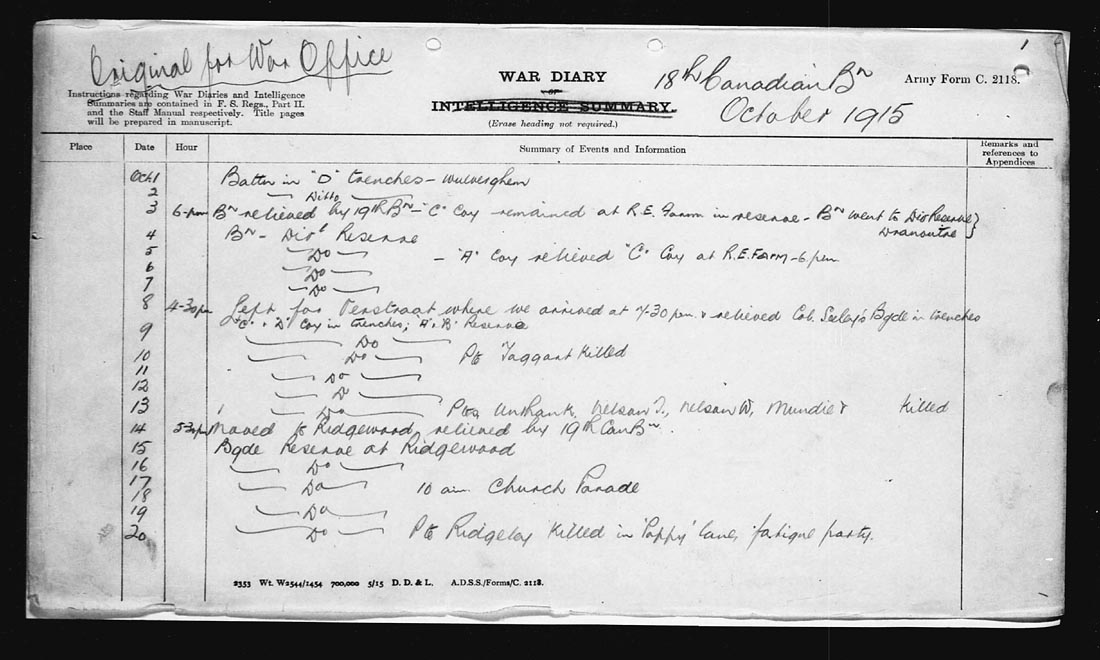 Original for War Office
1
WAR DIARY
or
INTELLIGENCE SUMMARY.
(Erase heading not required.)
18th Canadian Bn
October 1915
Army Form C. 2118.
Instructions regarding War Diaries and Intelligence
Summaries are contained in F. S. Regs., Part II.
and the Staff Manual respectively. Title pages
will be prepared in manuscript.
Place Date Hour Summary of Events and Information Remarks and references to Appendices
Oct 1 Battn in "D" trenches - Wulverghem
2 Ditto
3 6-pm Bn relieved by 19th Bn - "C" Coy remained at R.E. Farm in reserve - Bn went to Div Reserve
Dranoutre
4 Bn - Divl Reserve
5 Do - "A" Coy relieved "C" Coy at R.E. Farm - 6 pm
6 Do
7 Do
8 4-30pm Left for Vierstraat where we arrived at 7-30 pm. & relieved Col. Seeley's Bgde in trenches
"C" & "D" Coy in trenches; "A", "B" Reserve
9 Do
10 Do Pte Taggart Killed
11 Do
12 D
13 Do Ptes Unthank, Nelson J., Nelson W., Mundie Killed
14 Moved to Ridgewood, relieved by 19th Can Bn.
15 Bgde Reserve at Ridgewood
16 Do
17 Do 10 am. Church Parade
18
19 Do
20 Do Pte Ridgeley Killed in 'Poppy' lane, fatigue party.
2353 Wt. W2544/1454 700,000 5/15 D. D. & L. A.D.S.S./Forms/C. 2118.